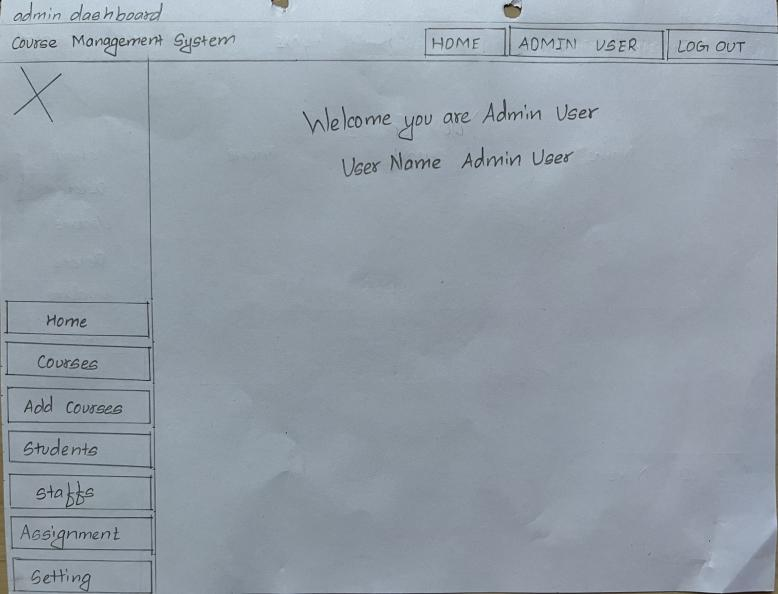 admin dashboard
Course Management System
HOME
ADMIN USER
LOG OUT
Welcome you are Admin User
User Name Admin User
Home
Courses
Add Courses
Students
Staffs
Assignment
Setting